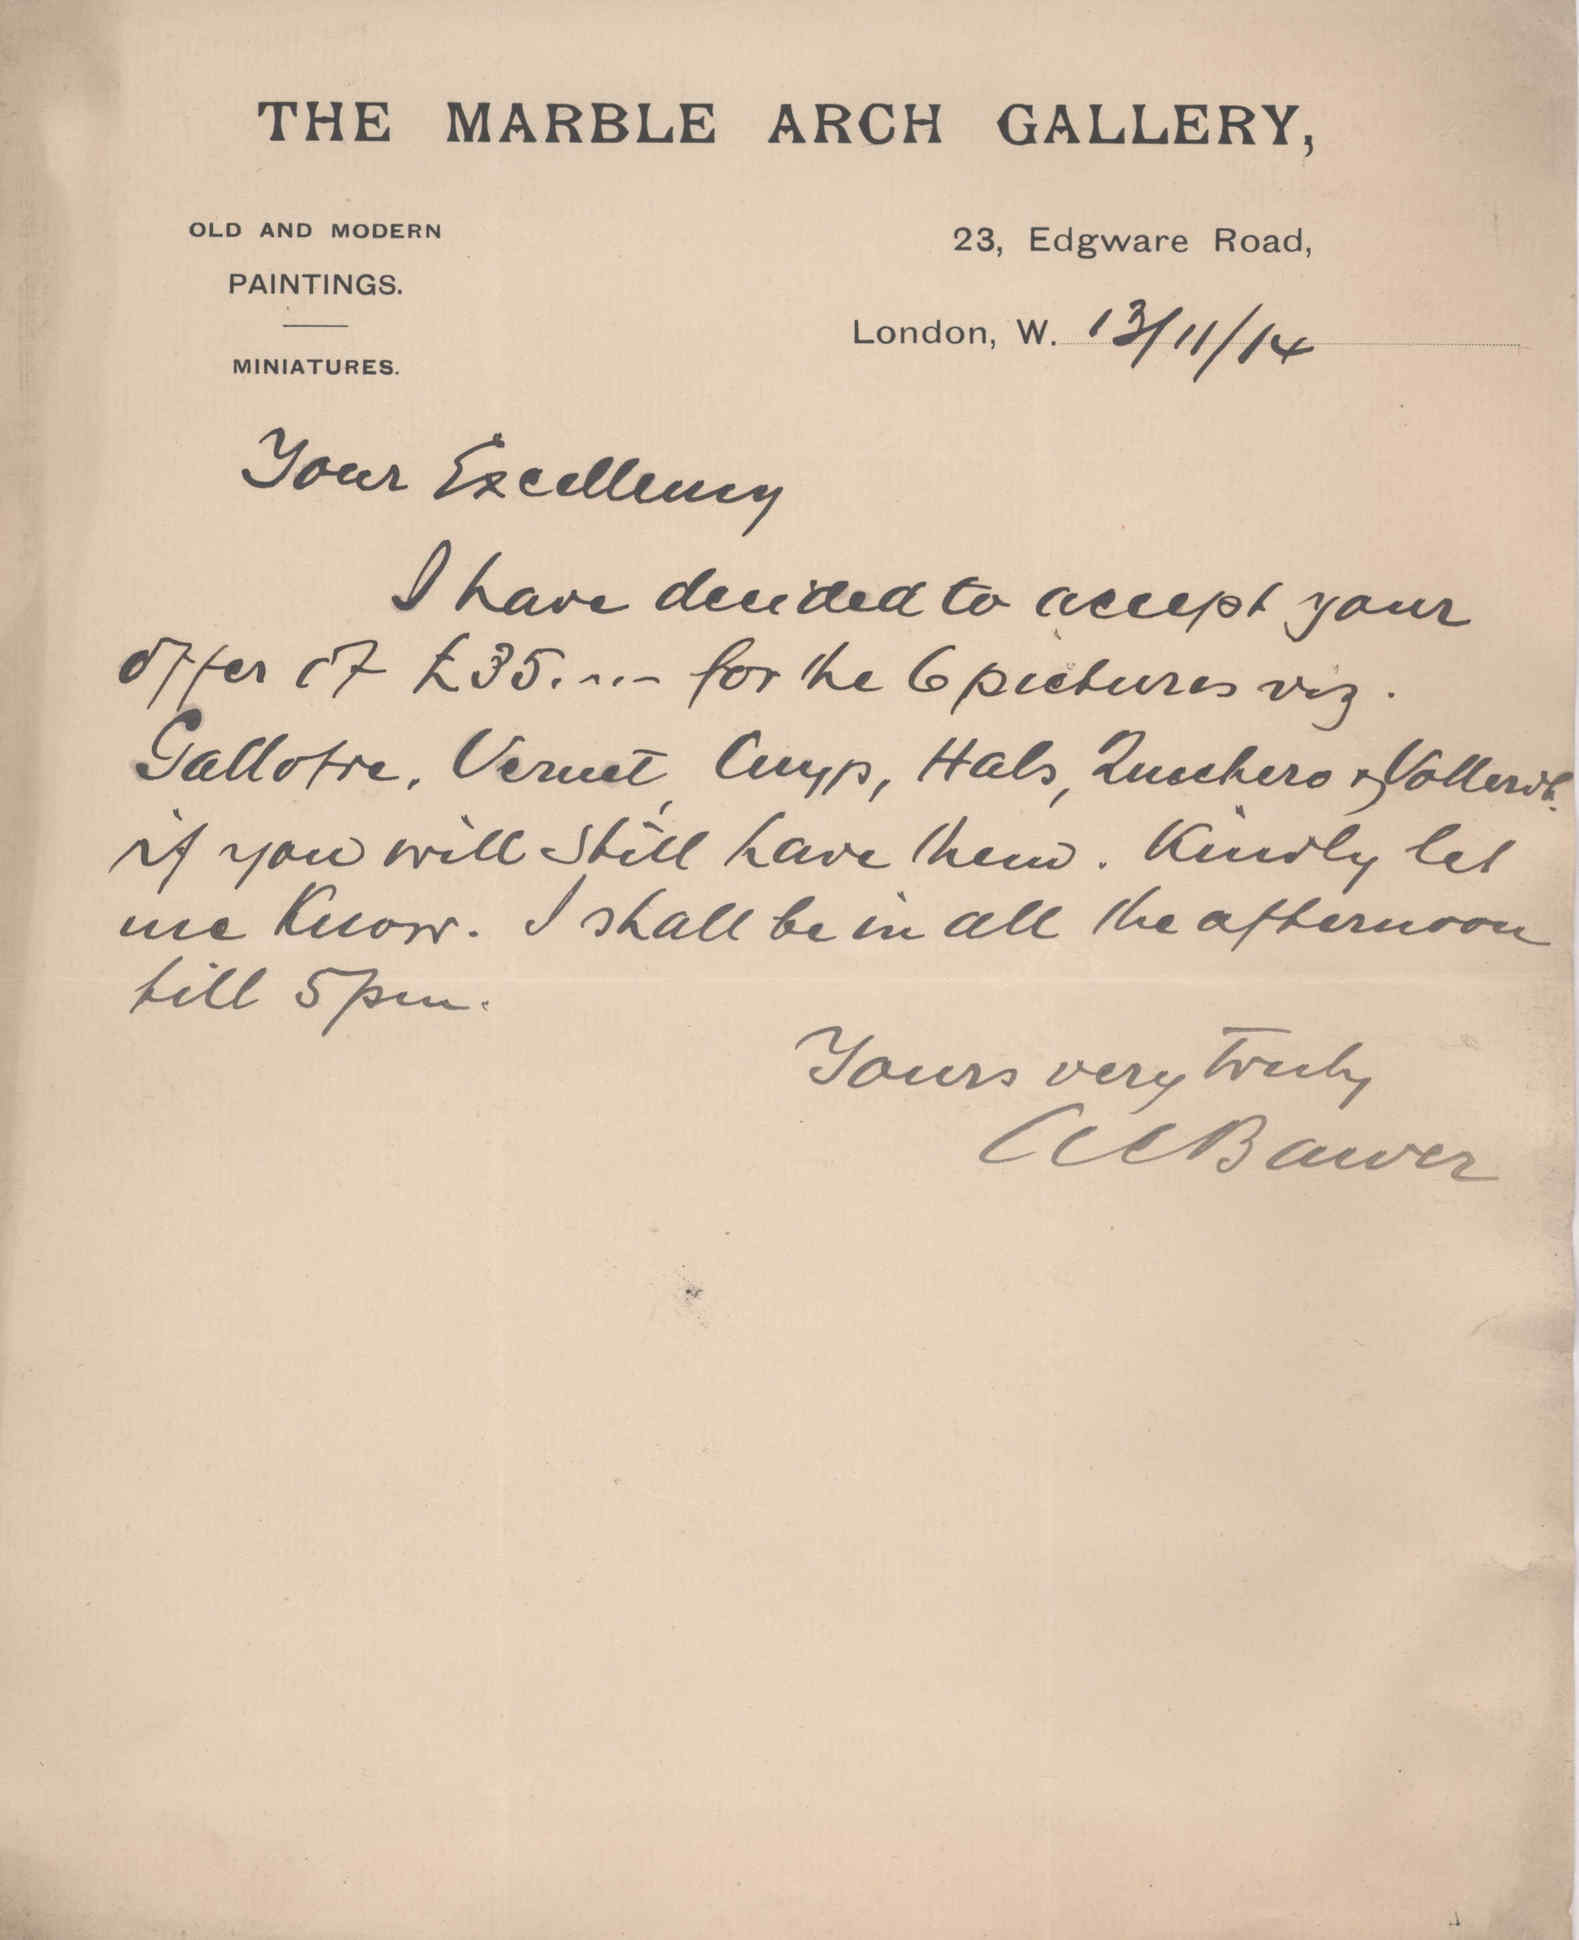 THE MARBLE ARCH GALLERY,
OLD AND MODERN
PAINTINGS.
MINIATURES.
23, Edgware Road,
London, W. 13/11/14
Your Excellency
I have decided to accept your
offer of £35.-.- for the 6 pictures viz.
Gallotre, Vernet, Cuyp, Hals, Zucchero &
if you will still have them. Kindly let
me Know. I shall be in all the afternoon
till 5pm.
Yours very truly
Bawer